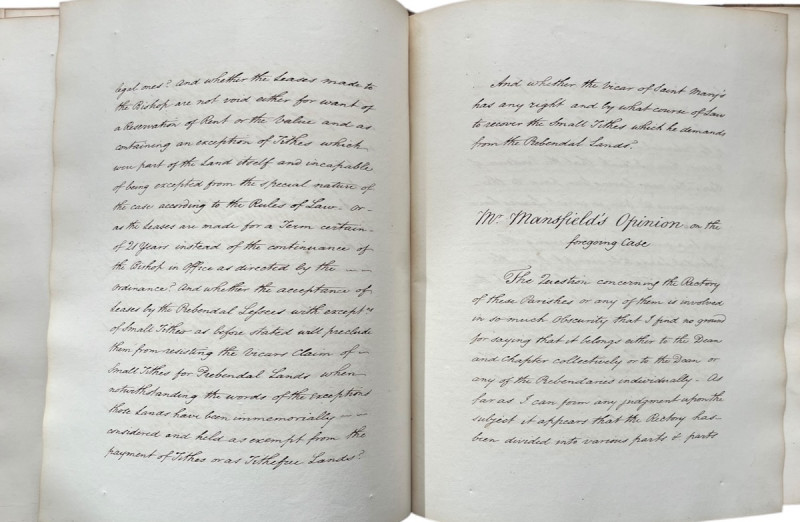 legal ones? And whether the Leases made to
the Bishop are not void either for want of
a Reservation of Rent or the Value and as
containing an exception of Tithes which
were part of the Land itself and incapable
of being excepted from the special nature of
the case according to the Rules of Law. Or -
as the Leases are made for a Term certain -
of 21 Years instead of the continuance of
the Bishop in Office as directed by the - -
Ordinance? And whether the acceptance of
Leases by the Prebendal Lessees with except.ns
of Small Tithes as before stated will preclude
them from resisting the Vicars Claim of -
Small Tithes for Prebendal Lands when -
notwithstanding the words of the exceptions
those Lands have been immemorially - -
considered and held as exempt from the
payment of Tithes or as Tithefree Lands?
And whether the Vicar of Saint Mary's
has any right and by what course of Law
to recover the Small Tithes which he demands
from the Prebendal Lands?
Mr. Mansfield's Opinion on the
foregoing Case
The Question concerning the Rectory
of these Parishes or any of them is involved
in so much Obscurity that I find no ground
for saying that it belongs either to the Dean
and Chapter collectively or to the Dean or
any of the Prebendaries individually - As
far as I can form any judgment upon the
subject it appears that the Rectory has -
been divided into various parts & parts